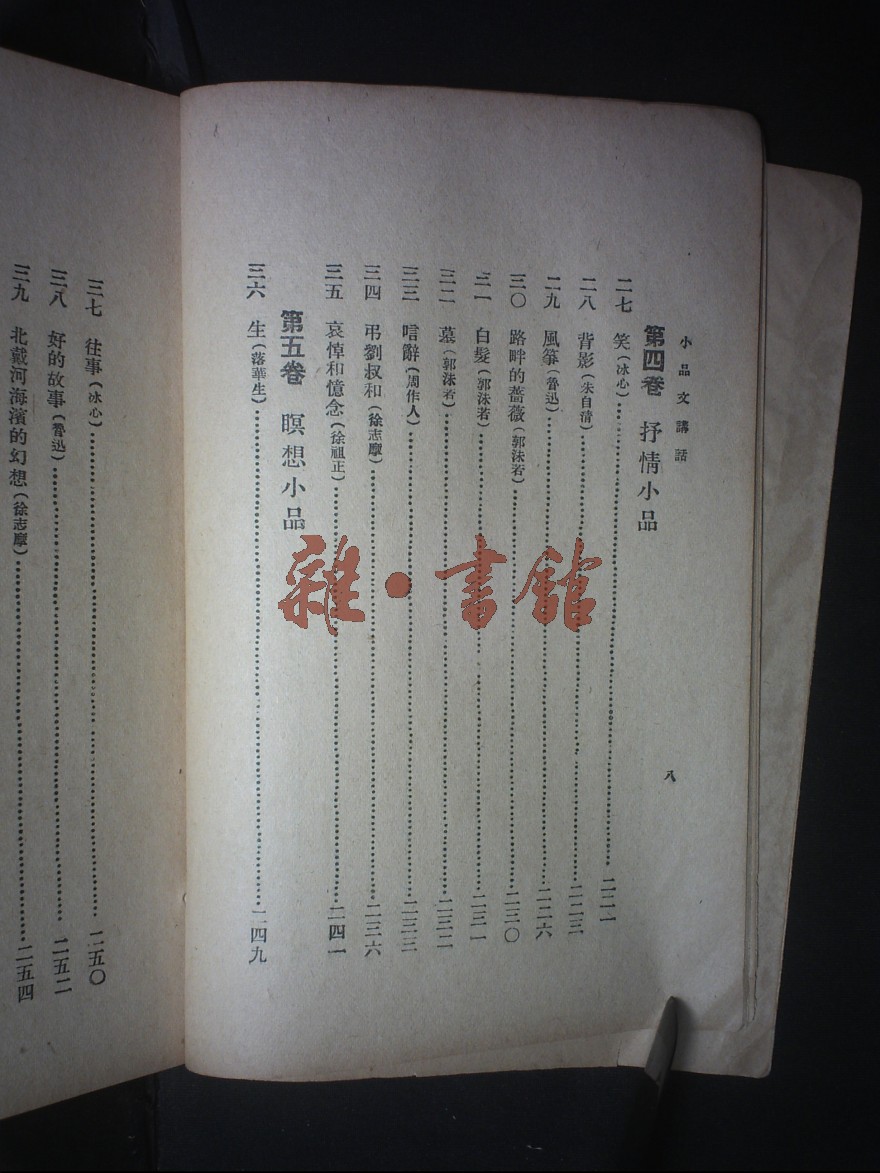 小品文講話
八
第四卷 抒情小品
二七 笑(冰心)……二二一
二八 背影(朱自清)……二二三
二九 風箏(魯迅)……二二六
三〇 路畔的薔薇(郭沬若)……二三〇
三一 白髮(郭沬若)……二三一
三二 墓(郭沬若)……二三二
三三 唁辭(周作人)……二三三
三四 弔劉叔和(徐志摩)……二三六
三五 哀悼和憶念(徐祖正)……二四一
第五卷 瞑想小品
三六 生(落華生)……二四九
三七 往事(冰心)……二五〇
三八 好的故事(魯迅)……二五二
三九 北戴河海濱的幻想(徐志摩)……二五四
雜·書館